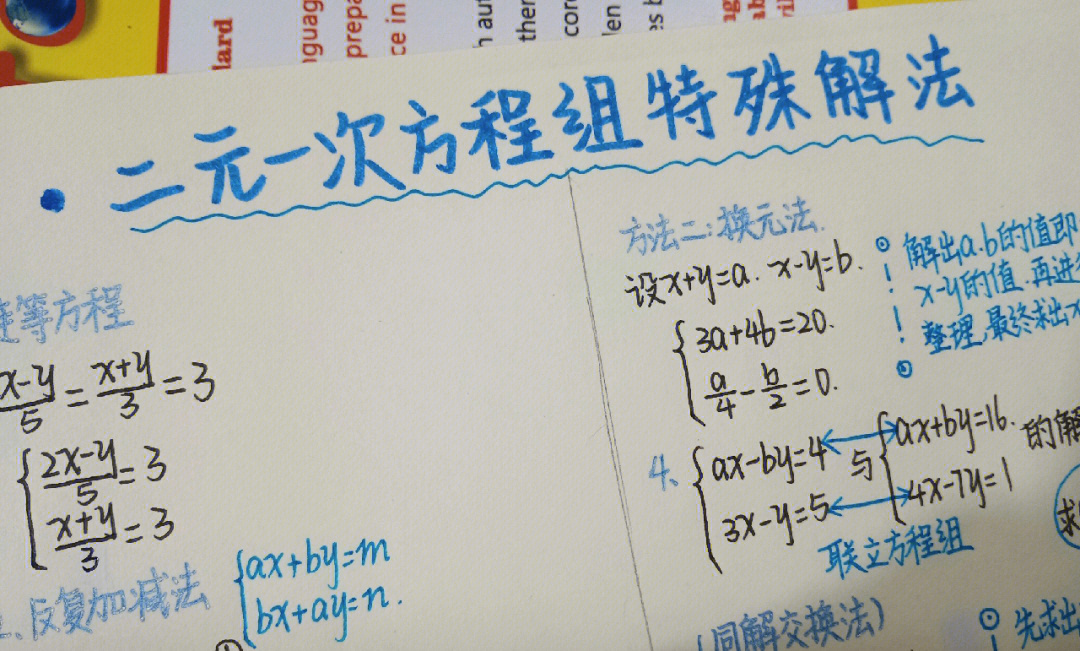 lard
guag
prepa
ce in
h aut
ther
con
len
es b
二元一次方程组特殊解法
等方程
x-y/5 = x+y/3 = 3
{2x-y/5 = 3
x+y/3 = 3
反复加减法
{ax+by=m
bx+ay=n.
方法二:换元法.
设x+y=a. x-y=b.
{3a+4b=20.
a/4 - b/2 = 0.
解出a.b的值即
x-y的值.再进
整理,最终求出x
4、{ax-by=4 与 {ax+by=16. 的解
3x-y=5 4x-7y=1
求
联立方程组
(同解交换法)
先求出